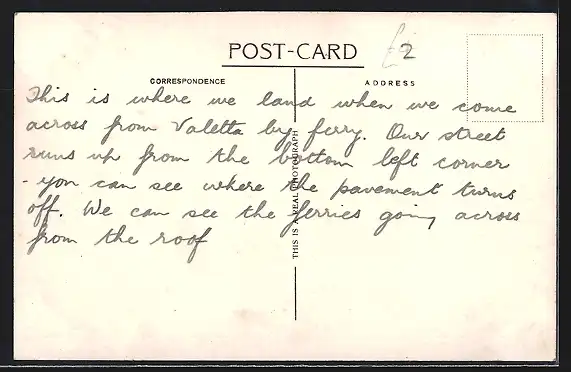 POST-CARD
£2
CORRESPONDENCE
ADDRESS
This is where we land when we come
across from Valetta by ferry. Our street
runs up from the bottom left corner
- you can see where the pavement turns
off. We can see the ferries going across
from the roof
THIS IS A REAL PHOTOGRAPH